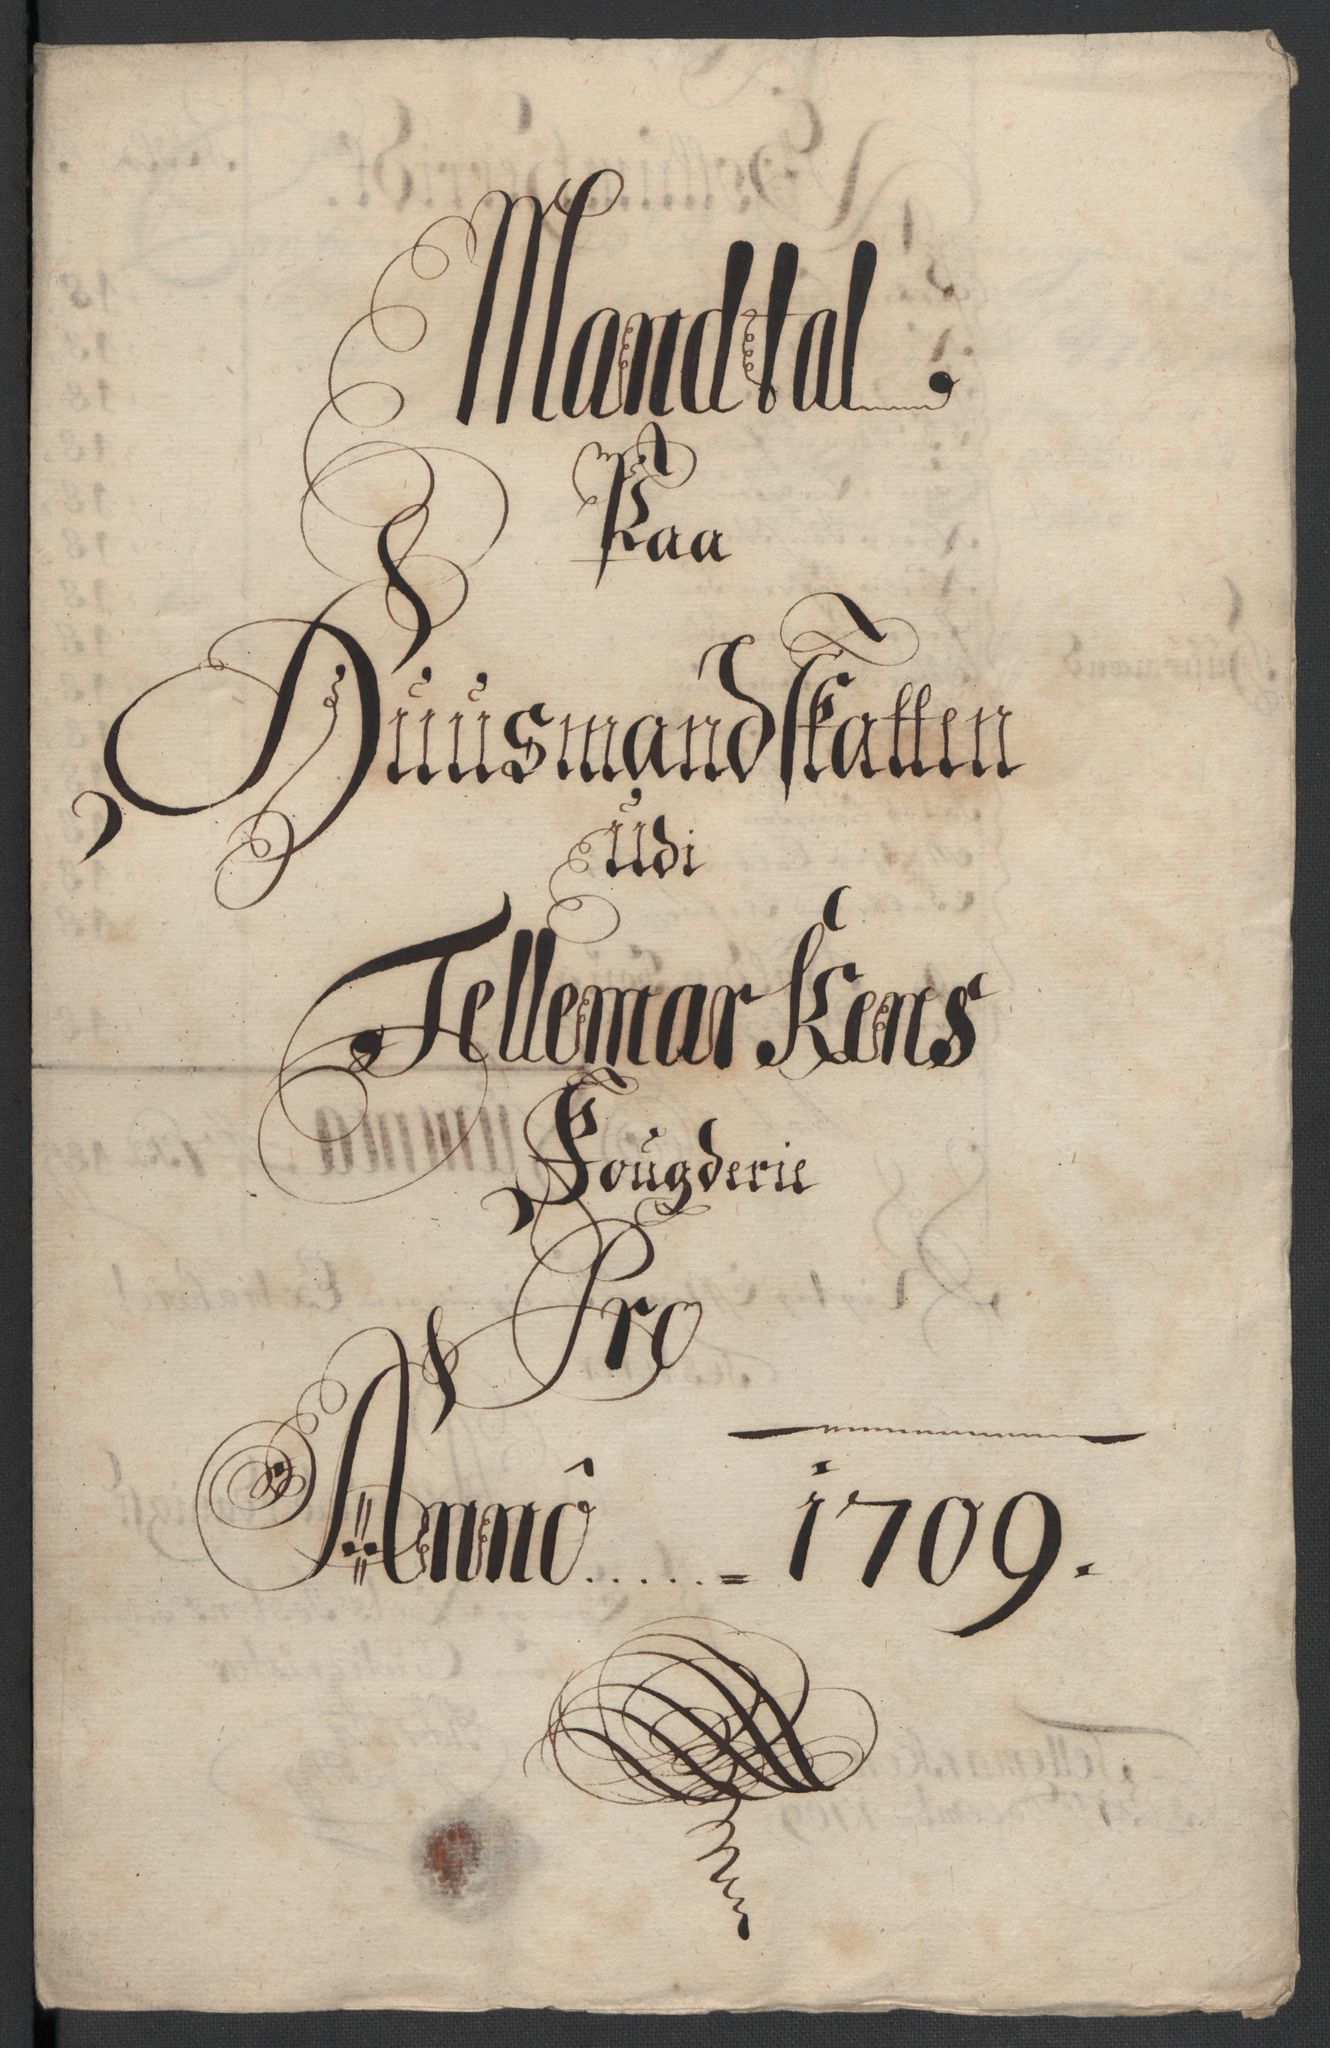 Mandtal
Paa
Huusmandskatten
udi
Tellemarkens
Fougderie
Pro
Annô ..... = 1709.